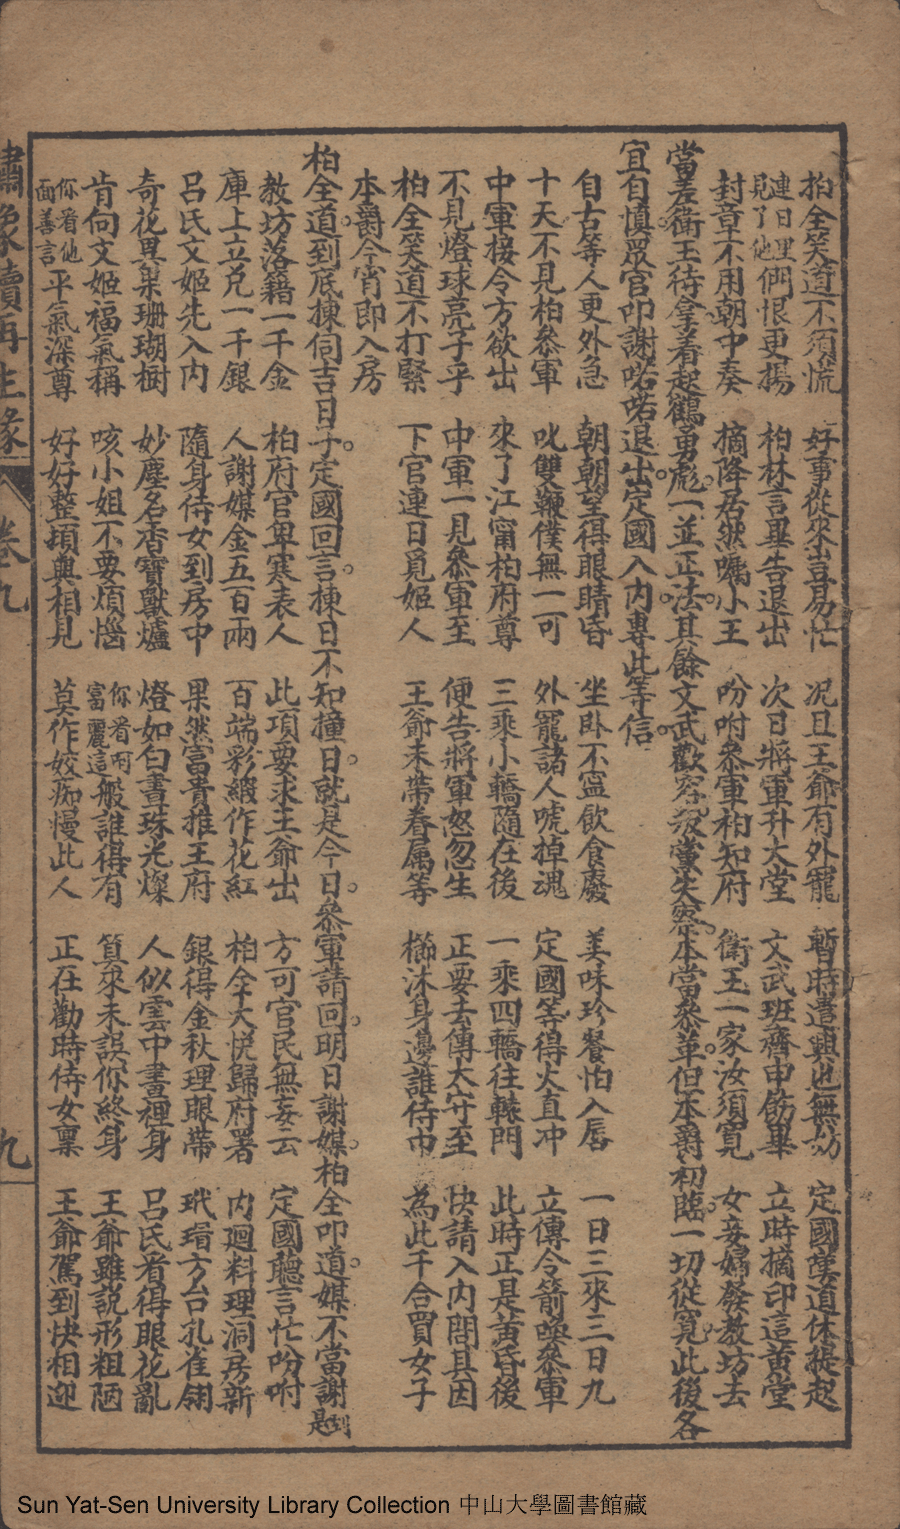 柏全笑道不須慌　好事從來豈易忙　况且王爺有外寵　暫時遣興也無妨　定國嘆道休提起
連日里見了他們恨更揚　柏林言畢告退出　次日將軍升大堂　文武班齊申飭畢　立時摘印這黄堂
封章不用朝中奏　摘降居然囑小王　吩咐叅軍和知府　衛王一家汝須寛　女妾婦發教坊去
當差衛王待拿着起鶴勇彪一並正法其餘文武歡容叛黨失察本當叅革但本爵初臨一切從寛此後各
宜自慎眾官叩謝喏喏退出定國入內專此等信
自古等人更外急　朝朝望得眼睛昏　坐卧不寧飲食廢　美味珍餐怕入唇　一日三來三日九
十天不見柏叅軍　叱雙鞭僕無一可　外寵諸人唬掉魂　定國等得火直冲　立傳令箭喚叅軍
中軍接令方欲出　來了江甯柏府尊　三乘小轎隨在後　一乘四轎往轅門　此時正是黄昏後
不見燈球亮子乎　中軍一見叅軍至　便告將軍怒忽生　正要去傳太守至　快請入內問其因
柏全笑道不打緊　下官連日覓姬人　王爺未帶眷属等　櫛沐身邊誰侍巾　為此千合買女子
本爵今宵即入房
柏全道到底揀個吉日子定國回言揀日不知撞日就是今日叅軍請回明日謝媒柏全叩道媒不當謝到是
教坊落籍一千金　柏府官卑寒表人　此項要求王爺出　方可官民無妄云　定國聽言忙吩咐
庫上立兑一千銀　人謝媒金五百兩　百端彩緞作花紅　柏全大悦歸府署　内廻料理洞房新
吕氏文姬先入内　隨身侍女到房中　果然富貴推王府　銀得金秋理眼帶　玳瑁方台孔雀翎
奇花異菓珊瑚樹　妙麈名香寶獸爐　燈如白晝珠光燦　人似雲中畫裡身　吕氏看得眼花亂
肯向文姬福氣稱　咳小姐不要煩惱　你看呵富麗這般誰得有　算來未誤你終身　王爺雖説形粗陋
你看他面善言平氣深尊　好好整頓與相見　莫作姣痴慢此人　正在勸時侍女稟　王爺駕到快相迎
繡像續再生緣　卷九　九
Sun Yat-Sen University Library Collection 中山大學圖書館藏